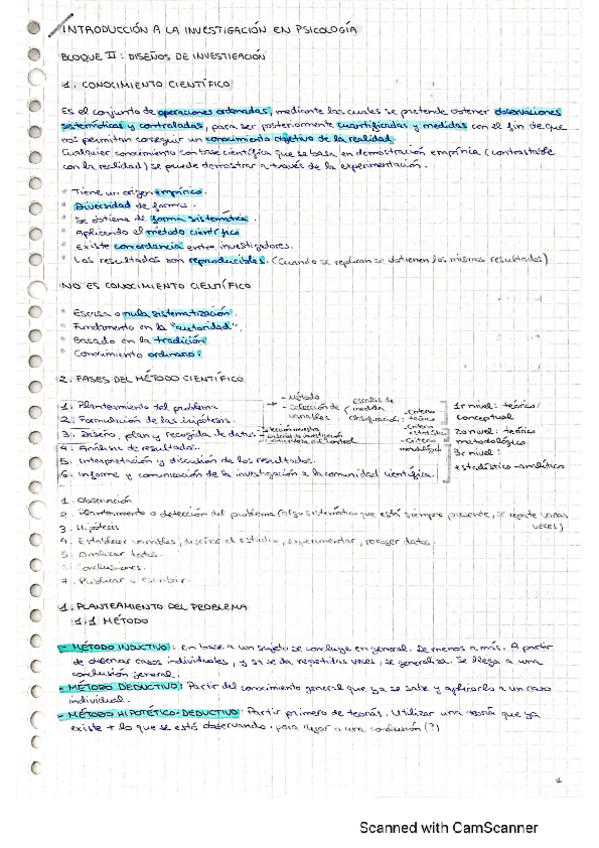 INTRODUCCIÓN A LA INVESTIGACIÓN EN PSICOLOGÍA
BLOQUE II: DISEÑOS DE INVESTIGACIÓN
1. CONOCIMIENTO CIENTÍFICO
Es el conjunto de operaciones ordenadas, mediante las cuales se pretende obtener observaciones
sistemáticas y controladas, para ser posteriormente cuantificadas y medidas con el fin de que
nos permitan conseguir un conocimiento objetivo de la realidad.
Cualquier conocimiento con base científica que se basa en demostración empírica (contrastable
con la realidad) se puede demostrar a través de la experimentación.
° Tiene un origen empírico.
° Diversidad de formas.
° Se obtiene de forma sistemática.
° aplicando el método científico
° Existe concordancia entre investigadores.
° Los resultados son reproducibles. (Cuando se replican se obtienen los mismos resultados)
NO ES CONOCIMIENTO CIENTÍFICO
° Escasa o nula sistematización.
° Fundamento en la "autoridad".
° Basado en la tradición
° Conocimiento ordinario.
2. FASES DEL MÉTODO CIENTÍFICO
1. Planteamiento del problema
2. Formulación de las hipótesis.
3. Diseño, plan y recogida de datos.
4. Análisis de resultados.
5. Interpretación y discusión de los resultados.
6. Informe y comunicación de la investigación a la comunidad científica.
- Método
- Selección de variables
Escalas de medida
- Criterio teórico
- Criterio metodológico
1r nivel: teórico/
conceptual
2o nivel: teórico
metodológico
3r nivel:
estadístico-analítico
1. Observación
2. Planteamiento o detección del problema (algo sistemático que está siempre presente, se repite varias
veces)
3. Hipótesis
4. Establecer variables, diseñar el estudio, experimentar, recoger datos.
5. Analizar datos.
6. Conclusiones.
7. Publicar o escribir.
1. PLANTEAMIENTO DEL PROBLEMA
1.1 MÉTODO
- MÉTODO INDUCTIVO: en base a un sujeto se concluye en general. De menos a más. A partir
de observar casos individuales, y si se da repetidas veces, se generaliza. Se llega a una
conclusión general.
- MÉTODO DEDUCTIVO: Partir del conocimiento general que ya se sabe y aplicarlo a un caso
individual.
- MÉTODO HIPOTÉTICO-DEDUCTIVO: Partir primero de teorías. Utilizar una teoría que ya
existe + lo que se está observando para llegar a una conclusión (?)
1
Scanned with CamScanner